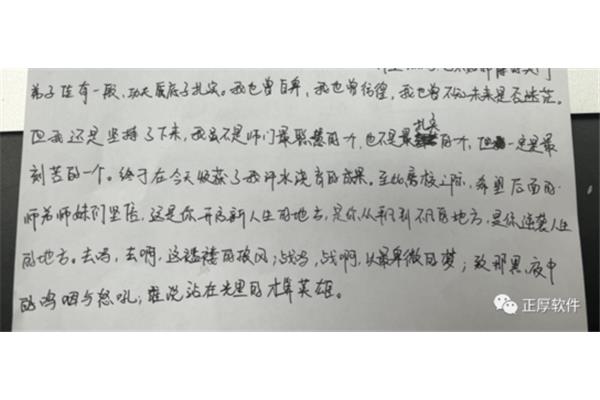 弟子陆有一段,功夫底底子扎实。我也曾自卑,我也曾彷徨,我也曾不知未来是否迷茫。
但我还是坚持了下来,我虽不是师门最聪慧的一个,也不是最扎实的一个,但一定是最
刻苦的一个。终于在今天收获了我汗水浇灌的成果。至此离校之际,希望后面的
师弟师妹们坚信,这是你开启新人生的地方,是你从平凡到不凡的地方,是你逆袭人生
的地方。去吗,去啊,这褴褛的披风;战吗,战啊,以最卑微的梦;致那黑夜中
的呜咽与怒吼;谁说站在光里的才算英雄。
正厚软件